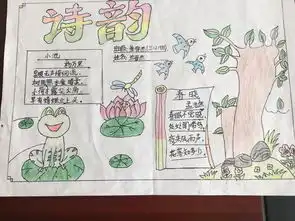 诗韵
小池
杨万里
泉眼无声惜细流，
树阴照水爱晴柔。
小荷才露尖尖角，
早有蜻蜓立上头。
春晓
孟浩然
春眠不觉晓，
处处闻啼鸟。
夜来风雨声，
花落知多少。